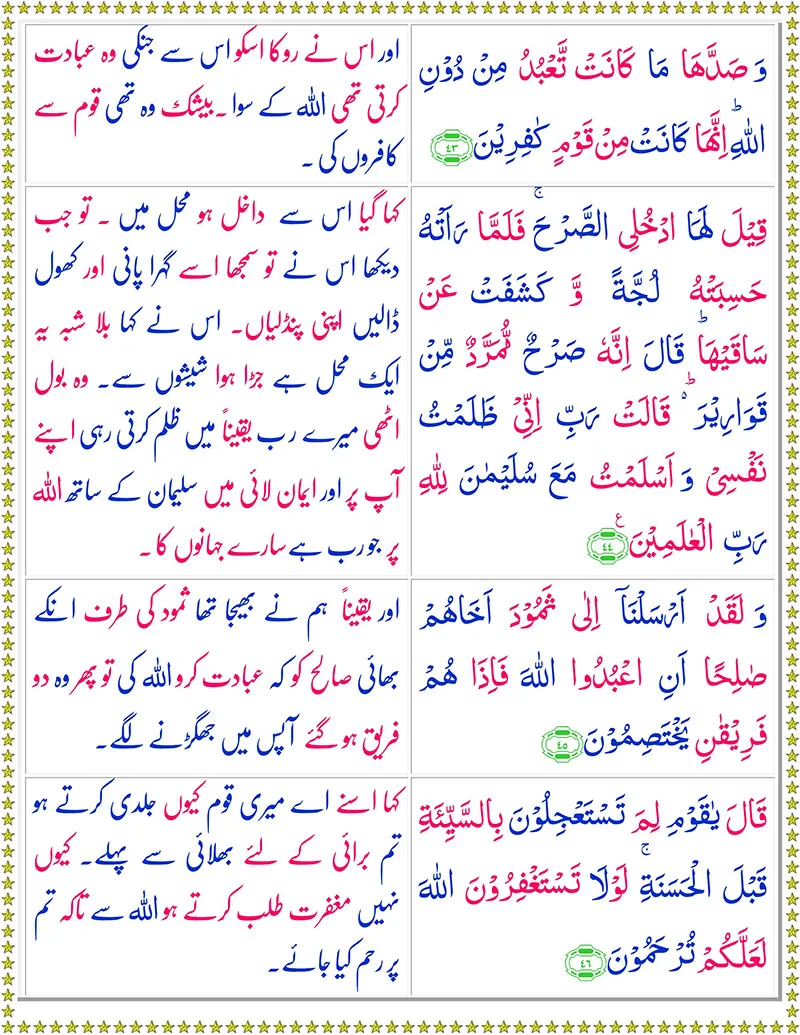 وَ صَدَّهَا مَا كَانَتْ تَّعْبُدُ مِنْ دُوْنِ
اللّٰهِؕ اِنَّهَا كَانَتْ مِنْ قَوْمٍ كٰفِرِیْنَ ﴿۴۳﴾
اور اس نے روکا اسکو اس سے جنکی وہ عبادت
کرتی تھی اللہ کے سوا ۔ بیشک وہ تھی قوم سے
کافروں کی ۔
قِیْلَ لَهَا ادْخُلِی الصَّرْحَۚ فَلَمَّا رَاَتْهُ
حَسِبَتْهُ لُجَّةً وَّ كَشَفَتْ عَنْ
سَاقَیْهَاؕ قَالَ اِنَّهٗ صَرْحٌ مُّمَرَّدٌ مِّنْ
قَوَارِیْرَ۬ؕ قَالَتْ رَبِّ اِنِّیْ ظَلَمْتُ
نَفْسِیْ وَ اَسْلَمْتُ مَعَ سُلَیْمٰنَ لِلّٰهِ
رَبِّ الْعٰلَمِیْنَ۠ ﴿۴۴﴾
کہا گیا اس سے داخل ہو محل میں ۔ تو جب
دیکھا اس نے تو سمجھا اسے گہرا پانی اور کھول
ڈالیں اپنی پنڈلیاں۔ اس نے کہا بلا شبہ یہ
ایک محل ہے جڑا ہوا شیشوں سے۔ وہ بول
اٹھی میرے رب یقیناً میں ظلم کرتی رہی اپنے
آپ پر اور ایمان لائی میں سلیمان کے ساتھ اللہ
پر جو رب ہے سارے جہانوں کا ۔
وَ لَقَدْ اَرْسَلْنَاۤ اِلٰی ثَمُوْدَ اَخَاهُمْ
صٰلِحًا اَنِ اعْبُدُوا اللّٰهَ فَاِذَا هُمْ
فَرِیْقٰنِ یَخْتَصِمُوْنَ ﴿۴۵﴾
اور یقیناً ہم نے بھیجا تھا ثمود کی طرف انکے
بھائی صالح کو کہ عبادت کرو اللہ کی تو پھر وہ دو
فریق ہو گئے آپس میں جھگڑنے لگے۔
قَالَ یٰقَوْمِ لِمَ تَسْتَعْجِلُوْنَ بِالسَّیِّئَةِ
قَبْلَ الْحَسَنَةِۚ لَوْلَا تَسْتَغْفِرُوْنَ اللّٰهَ
لَعَلَّكُمْ تُرْحَمُوْنَ ﴿۴۶﴾
کہا اسنے اے میری قوم کیوں جلدی کرتے ہو
تم برائی کے لئے بھلائی سے پہلے۔ کیوں
نہیں مغفرت طلب کرتے ہو اللہ سے تاکہ تم
پر رحم کیا جائے۔